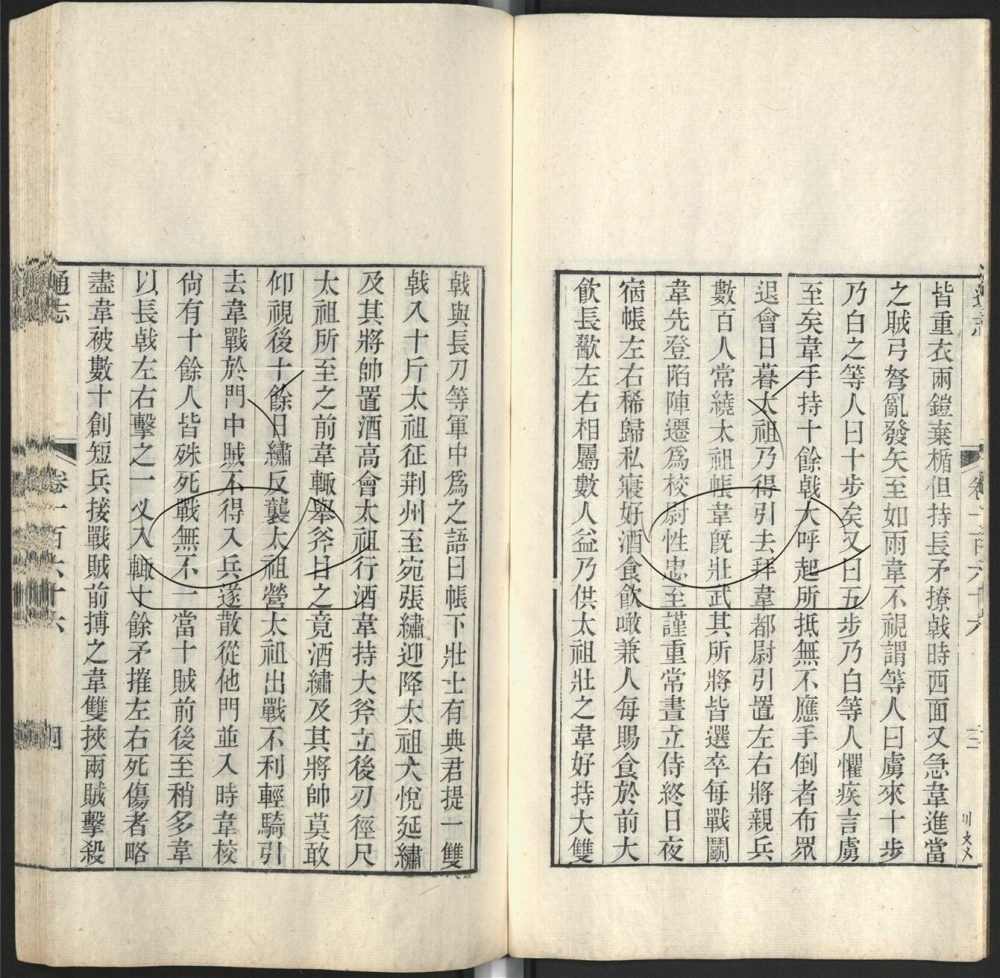 皆重衣兩鎧棄楯但持長矛撩戟時西面又急韋進當
之賊弓弩亂發矢至如雨韋不視謂等人曰虜來十步
乃白之等人曰十步矣又曰五步乃白等人懼疾言虜
至矣韋手持十餘戟大呼起所抵無不應手倒者布眾
退會日暮太祖乃得引去拜韋都尉引置左右將親兵
數百人常繞太祖帳韋旣壯武其所將皆選卒每戰鬭
韋先登陷陣遷爲校尉性忠至謹重常晝立侍終日夜
宿帳左右稀歸私寢好酒食飲噉兼人每賜食於前大
飲長歠左右相屬數人益乃供太祖壯之韋好持大雙
戟與長刀等軍中爲之語曰帳下壯士有典君提一雙
戟八十斤太祖征荆州至宛張繡迎降太祖大悅延繡
及其將帥置酒高會太祖行酒韋持大斧立後刃徑尺
太祖所至之前韋輒舉斧目之竟酒繡及其將帥莫敢
仰視後十餘日繡反襲太祖營太祖出戰不利輕騎引
去韋戰於門中賊不得入兵遂散從他門並入時韋校
尙有十餘人皆殊死戰無不一當十賊前後至稍多韋
以長戟左右擊之一乂入輒十餘矛摧左右死傷者略
盡韋被數十創短兵接戰賊前搏之韋雙挾兩賊擊殺
通志
卷一百六十六
四